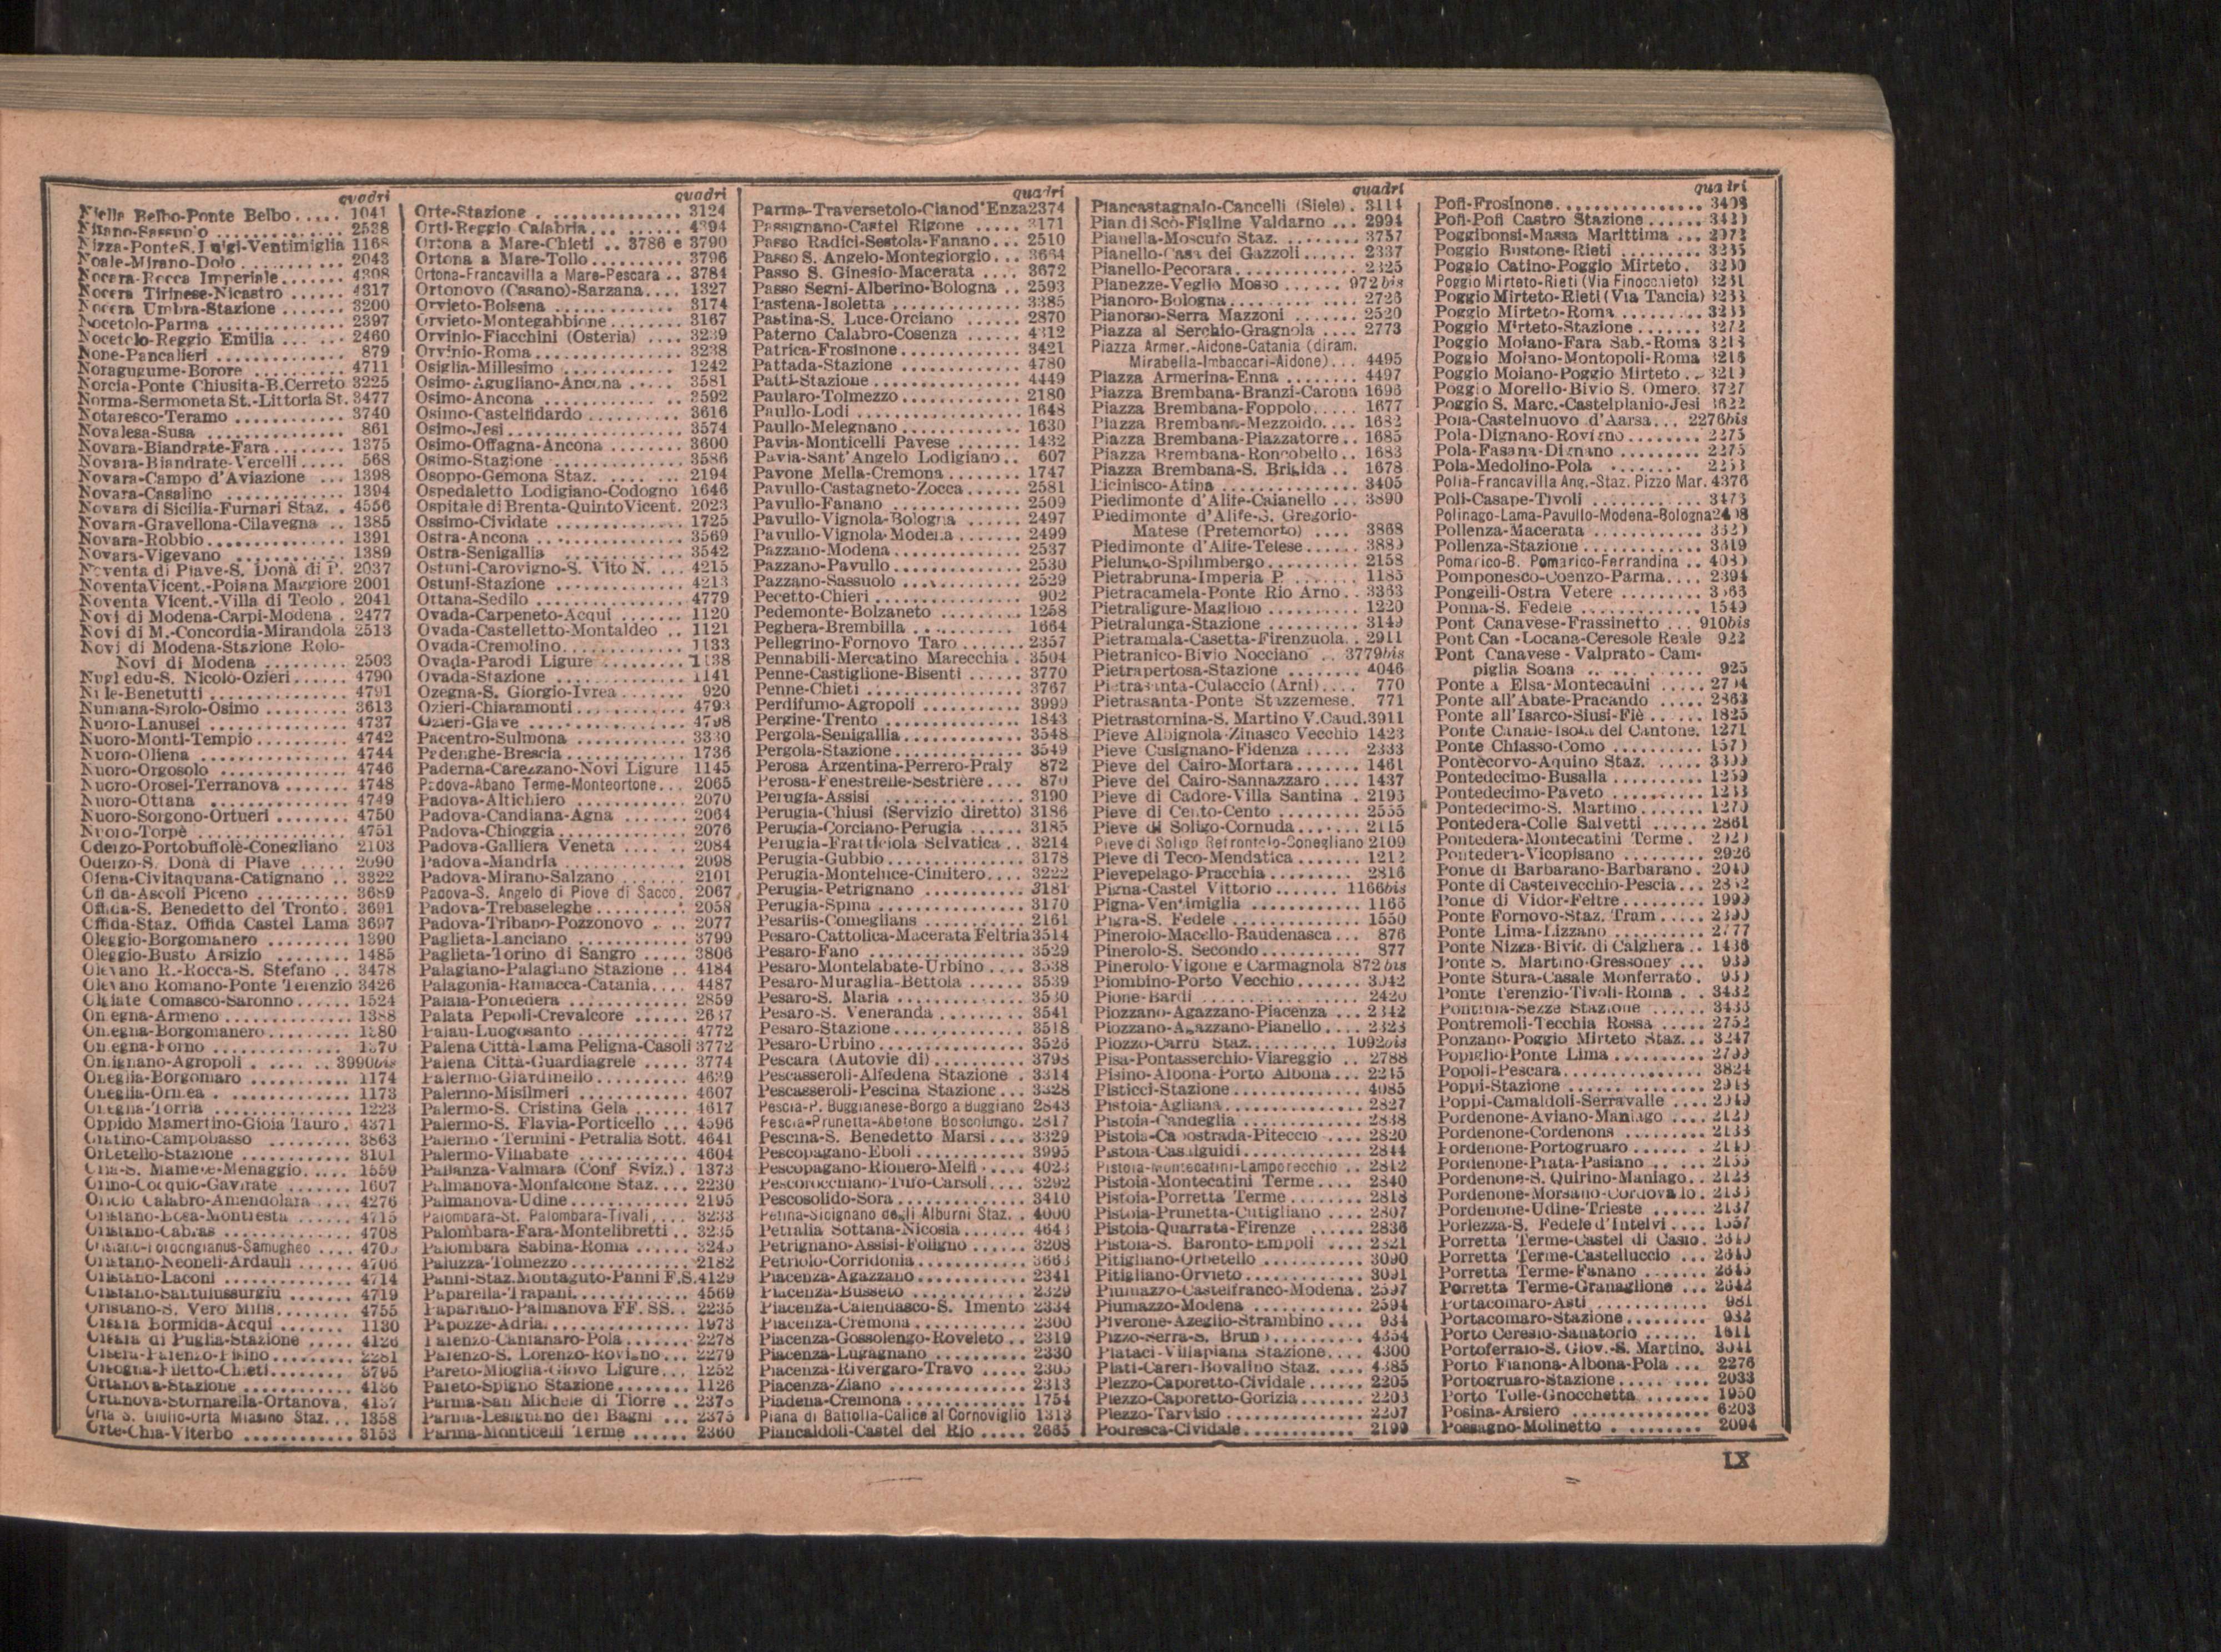 quadri
Niella Belbo-Ponte Belbo..... 1041
2538
Nizza-Ponte S. Luigi-Ventimiglia 1168
Noale-Mirano-Dolo .......... 2043
Nocera-Rocca Imperiale....... 4308
Nocera Tirinese-Nicastro ...... 4317
Nocera Umbra-Stazione ....... 3200
Nocetolo-Parma ............. 2397
Nocetolo-Reggio Emilia ... ... 2460
None-Pancalieri ............. 879
Noragugume-Borore .......... 4711
Norcia-Ponte Chiusita-B.Cerreto 3225
Norma-Sermoneta St.-Littoria St. 3477
Notaresco-Teramo ........... 3740
Novalesa-Susa .............. 861
Novara-Biandrate-Fara........ 1375
Novara-Biandrate-Vercelli..... 568
Novara-Campo d'Aviazione ... 1398
Novara-Casalino ............ 1394
Novara di Sicilia-Furnari Staz. . 4556
Novara-Gravellona-Cilavegna .. 1385
Novara-Robbio.............. 1391
Novara-Vigevano ............ 1389
Noventa di Piave-S. Donà di P. 2037
Noventa Vicent.-Poiana Maggiore 2001
Noventa Vicent.-Villa di Teolo . 2041
Novi di Modena-Carpi-Modena . 2477
Novi di M.-Concordia-Mirandola 2513
Novi di Modena-Stazione Rolo-
Novi di Modena ......... 2503
Nughedu-S. Nicolò-Ozieri...... 4790
Nule-Benetutti .............. 4791
Numana-Sirolo-Osimo ........ 3613
Nuoro-Lanusei .............. 4737
Nuoro-Monti-Tempio.......... 4742
Nuoro-Oliena ............... 4744
Nuoro-Orgosolo ............. 4746
Nuoro-Orosei-Terranova ....... 4748
Nuoro-Ottana .............. 4749
Nuoro-Sorgono-Ortueri ........ 4750
Nuoro-Torpè ............... 4751
Oderzo-Portobuffolè-Conegliano 2103
Oderzo-S. Donà di Piave ..... 2090
Ofena-Civitaquana-Catignano .. 3822
Offida-Ascoli Piceno .......... 3689
Offida-S. Benedetto del Tronto. 3691
Offida-Staz. Offida Castel Lama 3697
Oleggio-Borgomanero ......... 1390
Oleggio-Busto Arsizio ........ 1485
Olevano R.-Rocca-S. Stefano .. 3478
Olevano Romano-Ponte Terenzio 3426
Olgiate Comasco-Saronno...... 1524
Omegna-Armeno ............ 1388
Omegna-Borgomanero......... 1380
Omegna-Forno .............. 1370
Omignano-Agropoli . .... .. 3990bis
Oneglia-Borgomaro ........... 1174
1173
Oneglia-Torria .............. 1223
Oppido Mamertino-Gioia Tauro. 4371
Oratino-Campobasso ......... 3863
Orbetello-Stazione ........... 3101
Oria-S. Mamete-Menaggio. .... 1559
Orino-Cocquio-Gavirate ....... 1607
Oriolo Calabro-Amendolara .... 4276
4715
Oristano-Cabras ............ 4708
Oristano-Fordongianus-Samugheo ....
Oristano-Neoneli-Ardauli ...... 4706
Oristano-Laconi ............. 4714
Oristano-Santulussurgiu ....... 4719
Oristano-S. Vero Milis........ 4755
Orsara Bormida-Acqui ....... 1130
Orsara di Puglia-Stazione .... 4126
Orsera-Parenzo-Pisino......... 2281
Orsogna-Filetto-Chieti........ 3795
Ortanova-Stazione ........... 4136
Ortanova-Stornarella-Ortanova. 4137
Orta S. Giulio-Orta Miasino Staz. .. 1358
Orte-Chia-Viterbo ........... 3153
quadri
Orte-Stazione . ............. 3124
Orti-Reggio Calabria... ...... 4394
Ortona a Mare-Chieti .. 3786 e 3790
Ortona a Mare-Tollo.......... 3796
Ortona-Francavilla a Mare-Pescara .. 3784
Ortonovo (Casano)-Sarzana.... 1327
Orvieto-Bolsena ............. 3174
Orvieto-Montegabbione........ 3167
Orvinio-Fiacchini (Osteria) .... 3239
Orvinio-Roma............... 3238
Osiglia-Millesimo ............ 1242
Osimo-Agugliano-Ancona ..... 3581
Osimo-Ancona ............ .. 3592
Osimo-Castelfidardo .......... 3616
Osimo-Jesi................. 3574
Osimo-Offagna-Ancona ....... 3600
Osimo-Stazione ............. 3586
Osoppo-Gemona Staz. ..... ... 2194
Ospedaletto Lodigiano-Codogno 1646
Ospitale di Brenta-Quinto Vicent. 2023
Ossimo-Cividate ............. 1725
Ostra-Ancona .............. 3569
Ostra-Senigallia ............ 3542
Ostuni-Carovigno-S. Vito N. ... 4215
Ostuni-Stazione ............. 4213
Ottana-Sedilo ............... 4779
Ovada-Carpeneto-Acqui ....... 1120
Ovada-Castelletto-Montaldeo .. 1121
Ovada-Cremolino............. 1133
Ovada-Parodi Ligure ......... 1138
Ovada-Stazione ............. 1141
Ozegna-S. Giorgio-Ivrea ....... 920
Ozieri-Chiaramonti........... 4793
Ozieri-Giave ................ 4798
Pacentro-Sulmona ........... 3330
Padenghe-Brescia ............ 1736
Paderna-Carezzano-Novi Ligure 1145
Padova-Abano Terme-Monteortone... 2065
Padova-Altichiero ............ 2070
Padova-Candiana-Agna ....... 2064
Padova-Chioggia............. 2076
Padova-Galliera Veneta .... .. 2084
Padova-Mandria ............. 2098
Padova-Mirano-Salzano ....... 2101
Padova-S. Angelo di Piove di Sacco. 2067
Padova-Trebaseleghe.......... 2058
Padova-Tribano-Pozzonovo . .. 2077
Paglieta-Lanciano ........... 3799
Paglieta-Torino di Sangro ..... 3806
Palagiano-Palagiano Stazione .. 4184
Palagonia-Ramacca-Catania.... 4487
Palaia-Pontedera ............ 2859
Palata Pepoli-Crevalcore ...... 2637
Palau-Luogosanto ............ 4772
Palena Città-Lama Peligna-Casoli 3772
Palena Città-Guardiagrele ..... 3774
Palermo-Giardinello .......... 4639
Palermo-Misilmeri ........... 4607
Palermo-S. Cristina Gela ...... 4617
Palermo-S. Flavia-Porticello ... 4596
Palermo-Termini-Petralia Sott. 4641
Palermo-Villabate ........... 4604
Pallanza-Valmara (Conf. Sviz.) . 1373
Palmanova-Monfalcone Staz.... 2230
Palmanova-Udine............ 2195
Palombara-St. Palombara-Tivoli.... 3233
Palombara-Fara-Montelibretti .. 3235
Palombara Sabina-Roma ......
Paluzza-Tolmezzo............ 2182
Panni-Staz.Montaguto-Panni F.S.4129
Paparella-Trapani............ 4569
Papariano-Palmanova FF. SS. . 2235
Papozze-Adria............... 1973
Parenzo-Canfanaro-Pola....... 2278
Parenzo-S. Lorenzo-Rovigno... 2279
Pareto-Mioglia-Giovo Ligure... 1252
Pareto-Spigno Stazione........ 1126
Parma-San Michele di Tiorre .. 2378
Parma-Lesignano dei Bagni ... 2375
Parma-Monticelli Terme ...... 2360
quadri
Parma-Traversetolo-Cianod'Enza2374
Passignano-Castel Rigone ..... 3171
Passo Radici-Sestola-Fanano... 2510
Passo S. Angelo-Montegiorgio... 3664
Passo S. Ginesio-Macerata .... 3672
Passo Segni-Alberino-Bologna .. 2593
Pastena-Isoletta ............. 3385
Pastina-S. Luce-Orciano ...... 2870
Paterno Calabro-Cosenza ...... 4312
Patrica-Frosinone............ 3421
Pattada-Stazione ............ 4780
Patti-Stazione............... 4449
Paularo-Tolmezzo............ 2180
Paullo-Lodi ................ 1648
Paullo-Melegnano ............ 1630
Pavia-Monticelli Pavese ....... 1432
Pavia-Sant'Angelo Lodigiano.. 607
Pavone Mella-Cremona........ 1747
Pavullo-Castagneto-Zocca...... 2581
Pavullo-Fanano ............. 2509
Pavullo-Vignola-Bologna ...... 2497
Pavullo-Vignola-Modena....... 2499
Pazzano-Modena............. 2537
Pazzano-Pavullo ............. 2530
Pazzano-Sassuolo ............ 2529
Pecetto-Chieri............... 902
Pedemonte-Bolzaneto ......... 1258
Peghera-Brembilla ........... 1664
Pellegrino-Fornovo Taro ...... 2357
Pennabili-Mercatino Marecchia . 3504
Penne-Castiglione-Bisenti ...... 3770
Penne-Chieti ............... 3767
Perdifumo-Agropoli .......... 3999
Pergine-Trento .............. 1843
Pergola-Senigallia............ 3548
Pergola-Stazione............. 3549
Perosa Argentina-Perrero-Praly 872
Perosa-Fenestrelle-Sestrière.... 870
Perugia-Assisi .............. 3190
Perugia-Chiusi (Servizio diretto) 3186
Perugia-Corciano-Perugia ...... 3185
Perugia-Fratticiola Selvatica .. 3214
Perugia-Gubbio ............. 3178
Perugia-Monteluce-Cimitero.... 3222
Perugia-Petrignano ........... 3181
Perugia-Spina ............... 3170
Pesariis-Comeglians .......... 2161
Pesaro-Cattolica-Macerata Feltria3514
Pesaro-Fano ................ 3529
Pesaro-Montelabate-Urbino .... 3538
Pesaro-Muraglia-Bettola ...... 3539
Pesaro-S. Maria ............. 3530
Pesaro-S. Veneranda ......... 3541
Pesaro-Stazione.............. 3518
Pesaro-Urbino............... 3526
Pescara (Autovie di).......... 3793
Pescasseroli-Alfedena Stazione . 3314
Pescasseroli-Pescina Stazione... 3328
Pescia-P. Buggianese-Borgo a Buggiano 2843
Pescia-Prunetta-Abetone Boscolungo. 2817
Pescina-S. Benedetto Marsi .... 3329
Pescopagano-Eboli ........... 3995
Pescopagano-Rionero-Melfi..... 4023
Pescorocchiano-Tufo-Carsoli.... 3292
Pescosolido-Sora............. 3410
Petina-Sicignano degli Alburni Staz. . 4000
Petralia Sottana-Nicosia....... 4643
Petrignano-Assisi-Foligno ..... 3208
Petriolo-Corridonia........... 3663
Piacenza-Agazzano........... 2341
Piacenza-Busseto ............ 2329
Piacenza-Calendasco-S. Imento 2334
Piacenza-Cremona ........... 2300
Piacenza-Gossolengo-Roveleto .. 2319
Piacenza-Lugagnano .......... 2330
Piacenza-Rivergaro-Travo ..... 2305
Piacenza-Ziano .............. 2313
Piadena-Cremona............ 1754
Piana di Battolla-Calice al Cornoviglio 1313
Piancaldoli-Castel del Rio ..... 2665
quadri
Piancastagnaio-Cancelli (Siele) . 3111
Pian di Scò-Figline Valdarno ... 2994
Pianella-Moscufo Staz. ........ 3757
Pianello-Casa dei Gazzoli...... 2337
Pianello-Pecorara............ 2325
Pianezze-Veglio Mosso ...... 972bis
Pianoro-Bologna............. 2726
Pianorso-Serra Mazzoni ...... 2520
Piazza al Serchio-Gragnola .... 2773
Piazza Armer.-Aidone-Catania (diram.
Mirabella-Imbaccari-Aidone)... 4495
Piazza Armerina-Enna ........ 4497
Piazza Brembana-Branzi-Carona 1696
Piazza Brembana-Foppolo..... 1677
Piazza Brembana-Mezzoldo.... 1682
Piazza Brembana-Piazzatorre.. 1685
Piazza Brembana-Roncobello.. 1683
Piazza Brembana-S. Brigida .. 1678
Picinisco-Atina .............. 3405
Piedimonte d'Alife-Caianello ... 3890
Piedimonte d'Alife-S. Gregorio-
Matese (Pretemorto) .... 3868
Piedimonte d'Alife-Telese...... 3889
Pielungo-Spilimbergo.......... 2158
Pietrabruna-Imperia P. ....... 1185
Pietracamela-Ponte Rio Arno.. 3363
Pietraligure-Magliolo ......... 1220
Pietralunga-Stazione .......... 3149
Pietramala-Casetta-Firenzuola. . 2911
Pietranico-Bivio Nocciano .. 3779bis
Pietrapertosa-Stazione ........ 4046
Pietrasanta-Culaccio (Arni).... 770
Pietrasanta-Ponte Stazzemese. 771
Pietrastornina-S. Martino V.Caud.3911
Pieve Albignola-Zinasco Vecchio 1423
Pieve Cusignano-Fidenza ..... 2333
Pieve del Cairo-Mortara....... 1461
Pieve del Cairo-Sannazzaro.... 1437
Pieve di Cadore-Villa Santina . 2193
Pieve di Cento-Cento ......... 2555
Pieve di Soligo-Cornuda....... 2115
Pieve di Soligo Refrontolo-Conegliano 2109
Pieve di Teco-Mendatica....... 1212
Pievepelago-Pracchia ......... 2816
Pigna-Castel Vittorio....... 1166bis
Pigna-Ventimiglia ........... 1165
Pigra-S. Fedele .............. 1550
Pinerolo-Macello-Baudenasca... 876
Pinerolo-S. Secondo........... 877
Pinerolo-Vigone e Carmagnola 872bis
Piombino-Porto Vecchio ...... 3042
Pione-Bardi ................ 2420
Piozzano-Agazzano-Piacenza ... 2342
Piozzano-Agazzano-Pianello.... 2323
Piozzo-Carrù Staz.......... 1092bis
Pisa-Pontasserchio-Viareggio .. 2788
Pisino-Albona-Porto Albona... 2215
Pisticci-Stazione............. 4085
Pistoia-Agliana.............. 2827
Pistoia-Candeglia ............ 2838
Pistoia-Capostrada-Piteccio .... 2820
Pistoia-Casalguidi........... 2844
Pistoia-Montecatini-Lamporecchio .. 2812
Pistoia-Montecatini Terme.... 2840
Pistoia-Porretta Terme ....... 2818
Pistoia-Prunetta-Cutigliano .... 2807
Pistoia-Quarrata-Firenze ...... 2836
Pistoia-S. Baronto-Empoli .... 2821
Pitigliano-Orbetello........... 3090
Pitigliano-Orvieto............ 3091
Piumazzo-Castelfranco-Modena. 2597
Piumazzo-Modena ........... 2594
Piverone-Azeglio-Strambino.... 934
4354
Plataci-Villapiana Stazione.... 4300
Platì-Careri-Bovalino Staz. .... 4385
Plezzo-Caporetto-Cividale...... 2205
Plezzo-Caporetto-Gorizia...... 2203
Plezzo-Tarvisio.............. 2207
Podresca-Cividale............ 2199
quadri
Pofi-Frosinone............... 3408
Pofi-Pofi Castro Stazione......
Poggibonsi-Massa Marittima ... 2972
Poggio Bustone-Rieti ......... 3235
Poggio Catino-Poggio Mirteto. 3230
Poggio Mirteto-Rieti (Via Finocchieto) 3231
Poggio Mirteto-Rieti (Via Tancia) 3233
Poggio Mirteto-Roma ........ 3233
Poggio Mirteto-Stazione....... 3272
Poggio Moiano-Fara Sab.-Roma 3213
Poggio Moiano-Montopoli-Roma 3216
Poggio Moiano-Poggio Mirteto .. 3219
Poggio Morello-Bivio S. Omero. 3727
Poggio S. Marc.-Castelplanio-Jesi 3622
Pola-Castelnuovo d'Aarsa... 2276bis
Pola-Dignano-Rovigno........ 2275
Pola-Fasana-Dignano ......... 2275
Pola-Medolino-Pola ........ 2253
Polia-Francavilla Ang.-Staz. Pizzo Mar. 4376
Poli-Casape-Tivoli ........... 3473
Polinago-Lama-Pavullo-Modena-Bologna2498
Pollenza-Macerata ............
Pollenza-Stazione............. 3619
Pomarico-B. Pomarico-Ferrandina ..
Pomponesco-Coenzo-Parma.... 2394
Pongelli-Ostra Vetere ......... 3566
Ponna-S. Fedele ............. 1549
Pont Canavese-Frassinetto ... 910bis
Pont Can.-Locana-Ceresole Reale 922
Pont Canavese - Valprato - Cam-
piglia Soana .. ... ...... 925
Ponte a Elsa-Montecatini .....
Ponte all'Abate-Pracando ..... 2863
Ponte all'Isarco-Siusi-Fiè...... 1825
Ponte Canale-Isola del Cantone. 1271
Ponte Chiasso-Como ..........
Pontecorvo-Aquino Staz. .....
Pontedecimo-Busalla .......... 1259
Pontedecimo-Paveto .......... 1233
Pontedecimo-S. Martino....... 1270
Pontedera-Colle Salvetti ...... 2861
Pontedera-Montecatini Terme.
Pontedera-Vicopisano ......... 2926
Ponte di Barbarano-Barbarano.
Ponte di Castelvecchio-Pescia...
Ponte di Vidor-Feltre......... 1999
Ponte Fornovo-Staz. Tram .....
Ponte Lima-Lizzano .......... 2777
Ponte Nizza-Bivio di Calghera.. 1436
Ponte S. Martino-Gressoney ...
Ponte Stura-Casale Monferrato.
Ponte Terenzio-Tivoli-Roma . . 3432
Pontinia-Sezze Stazione ...... 3435
Pontremoli-Tecchia Rossa ..... 2752
Ponzano-Poggio Mirteto Staz... 3247
Popiglio-Ponte Lima..........
Popoli-Pescara............... 3824
Poppi-Stazione ..............
Poppi-Camaldoli-Serravalle ....
Pordenone-Aviano-Maniago ...
Pordenone-Cordenons ......... 2133
Pordenone-Portogruaro .......
Pordenone-Prata-Pasiano .. ... 2155
Pordenone-S. Quirino-Maniago.. 2123
Pordenone-Morsano-Cordovado. 2135
Pordenone-Udine-Trieste ...... 2137
Porlezza-S. Fedele d'Intelvi .... 1557
Porretta Terme-Castel di Casio.
Porretta Terme-Castelluccio ...
Porretta Terme-Fanano ....... 2645
Porretta Terme-Granaglione ... 2642
Portacomaro-Asti ........... 981
Portacomaro-Stazione......... 982
Porto Ceresio-Sanatorio ...... 1611
Portoferraio-S. Giov.-S. Martino. 3041
Porto Fianona-Albona-Pola ... 2276
Portogruaro-Stazione.......... 2033
Porto Tolle-Gnocchetta........ 1950
Posina-Arsiero .............. 6203
Possagno-Molinetto . ........ 2094
LX